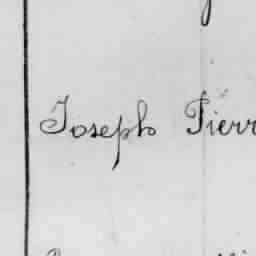 Joseph Pierr